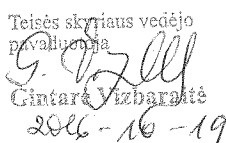 Teisės skyriaus vedėjo
pavaduotoja
Gintarė Vizbaraitė
2016-10-19